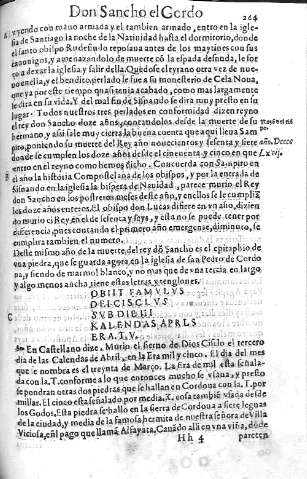 Don Sancho el Gordo
264
yendo con mano armada y el tambien armado, entro en la igle
sia de Santiago la noche de la Natiuidad hasta el dormitorio, donde
el santo obispo Rudesindo reposaua antes de los maytines con sus
canonigos, y amenazandolo de muerte cõ la espada desnuda, le for
ço a dexar la iglesia y salir della. Quedose el tyrano otra vez de nue-
uo en ella, y el bendito perlado se fue a su monesterio de Cela Noua,
que ya por este tiempo quasi tenia acabado, como mas largamente
se dira en su vida. Y del mal fin de Sisnando se dira muy presto en su
lugar. Todos nuestros tres perlados en conformidad dizen reyno
el rey don Sancho doze años, contandolos desde la muerte de su
hermano, y assi sale muy cierta la buena cuenta que aqui lleua Sam
piro, poniendo su muerte del Rey año nouecientos y sesenta y siete
donde se cumplen los doze años desde el cincuenta y cinco en que
entro en el reyno como hemos dicho. Concuerda con Sampiro en
el año la historia Compostelana de los obispos, y por la entrada de
Sisnando en la iglesia la bispera de Nauidad, parece murio el Rey
don Sancho en los postreros meses deste año, y en ellos se le cumpliã
los doze años enteros. El obispo don Lucas difiere en vn año, diziẽn
do murio el Rey en el de sesenta y seys, y esta no se puede tener por
diferencia, pues contando el primero año emergente, diminuto, se
cumplira tambien el numero.
De este mismo año de la muerte del rey dõ Sancho es el epitaphio de
vna piedra, que se guarda agora en la iglesia de san Pedro de Cordo
ua, y siendo de marmol blanco, y no mas que de vna tercia en largo
y algo menos ancha, tiene estas letras y renglones.
OBIIT FAMVLVS
DEI CISCLVS
SVB DIE III
KALENDAS APRLS
ERA. T. V.
En Castellano dize. Murio el sieruo de Dios Cisclo el tercero
dia de las Calendas de Abril, en la Era mil y cinco. El dia del mes
que se nombra es el treynta de Março. La Era de mil esta señala-
da con la .T. conforme a lo que entonces mucho se vsaua, y presto
se pondran otras dos piedras que se hallan en Cordoua con la .T. por
millar. El cinco esta señalado por media .X. cosa tambiẽ vsada desde
los Godos. Esta piedra se hallo en la sierra de Cordoua a siete leguas
de la ciudad, y media de la famosa hermita de nuestra señora de Villa
Viciosa, en el pago que llamã Alfayata. Cauãdo alli en vna viña, dõde
Hh 4
parecen